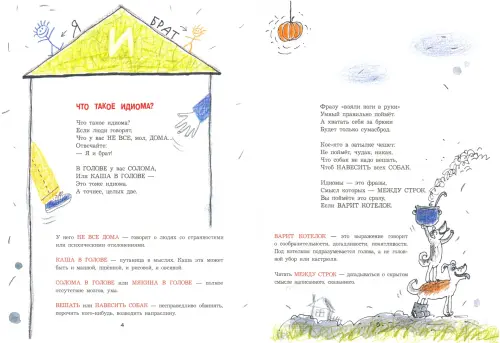 Я
БРАТ
И
ЧТО ТАКОЕ ИДИОМА?
Что такое идиома?
Если люди говорят,
Что у вас НЕ ВСЕ, мол, ДОМА...
Отвечайте:
— Я и брат!
В ГОЛОВЕ у вас СОЛОМА,
Или КАША В ГОЛОВЕ —
Это тоже идиома.
А точнее, целых две.
У него НЕ ВСЕ ДОМА — говорят о людях со странностями
или психическими отклонениями.
КАША В ГОЛОВЕ — путаница в мыслях. Каша эта может
быть и манной, пшённой, и рисовой, и овсяной.
СОЛОМА В ГОЛОВЕ или МЯКИНА В ГОЛОВЕ — полное
отсутствие мозгов, ума.
ВЕШАТЬ или НАВЕСИТЬ СОБАК — несправедливо обвинять,
порочить кого-нибудь, возводить напраслину.
4
Фразу «взяли ноги в руки»
Умный правильно поймёт.
А хватать себя за брюки
Будет только сумасброд.
Кое-кто в затылке чешет:
Не поймёт, чудак, никак,
Что собак не надо вешать,
Чтоб НАВЕСИТЬ всех СОБАК.
Идиомы — это фразы,
Смысл которых — МЕЖДУ СТРОК.
Вы поймёте это сразу,
Если ВАРИТ КОТЕЛОК.
ВАРИТ КОТЕЛОК — это выражение говорит
о сообразительности, догадливости, понятливости.
Под котелком подразумевается голова, а не голов-
ной убор или кастрюля.
Читать МЕЖДУ СТРОК — догадываться о скрытом
смысле написанного, сказанного.